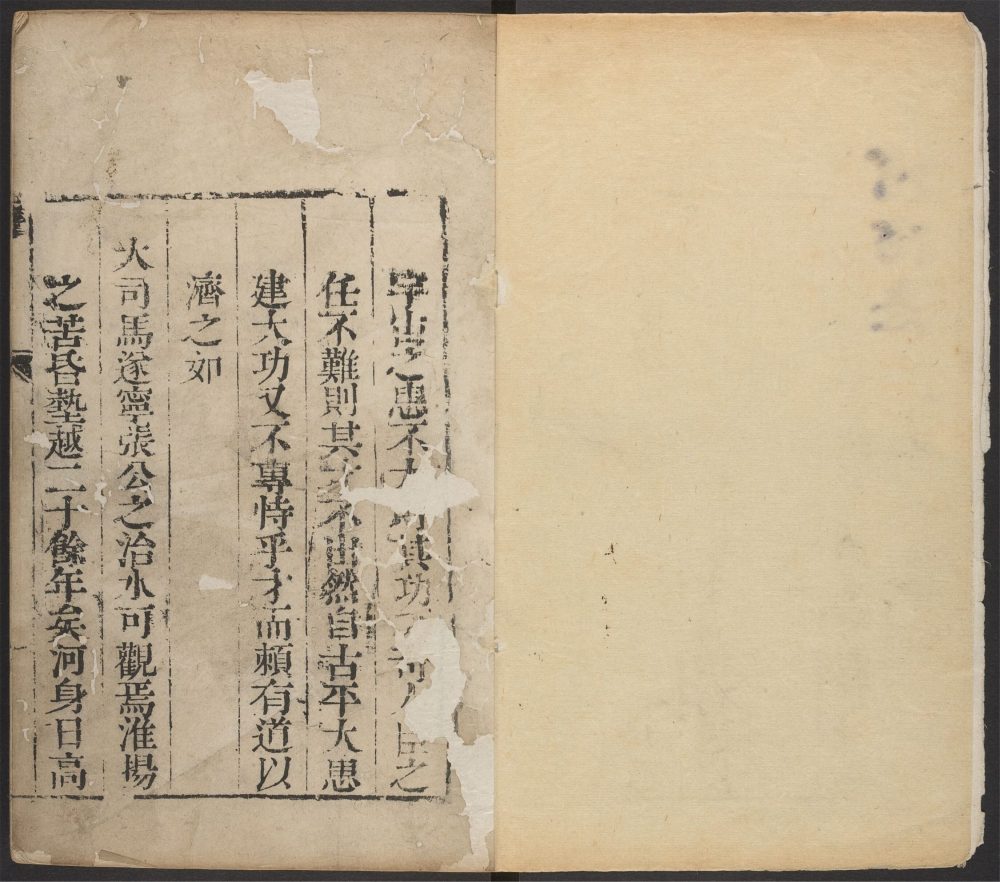 宇宙之患不大則其功不之
任不難則其才不出然自古平大患
建大功又不專恃乎才而頼有道以
濟之如
大司馬遂寧張公之治水可觀焉淮揚
之苦昏墊越二十餘年矣河身日高